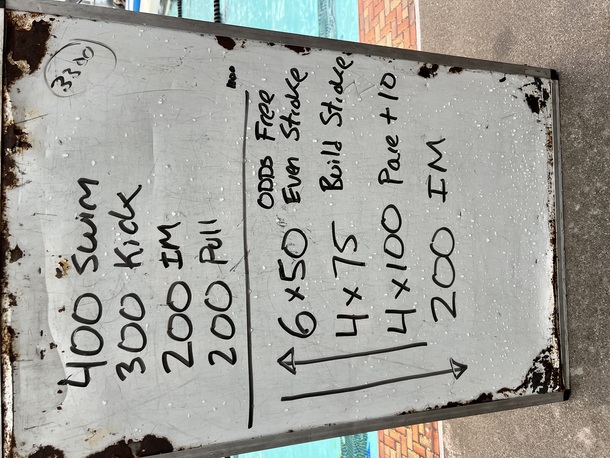 3300
400 Swim
300 Kick
200 IM
200 Pull
6 x 50 ODDS Free
Even Stroke
4 x 75 Build Stroke
4 x 100 Pace + 10
200 IM